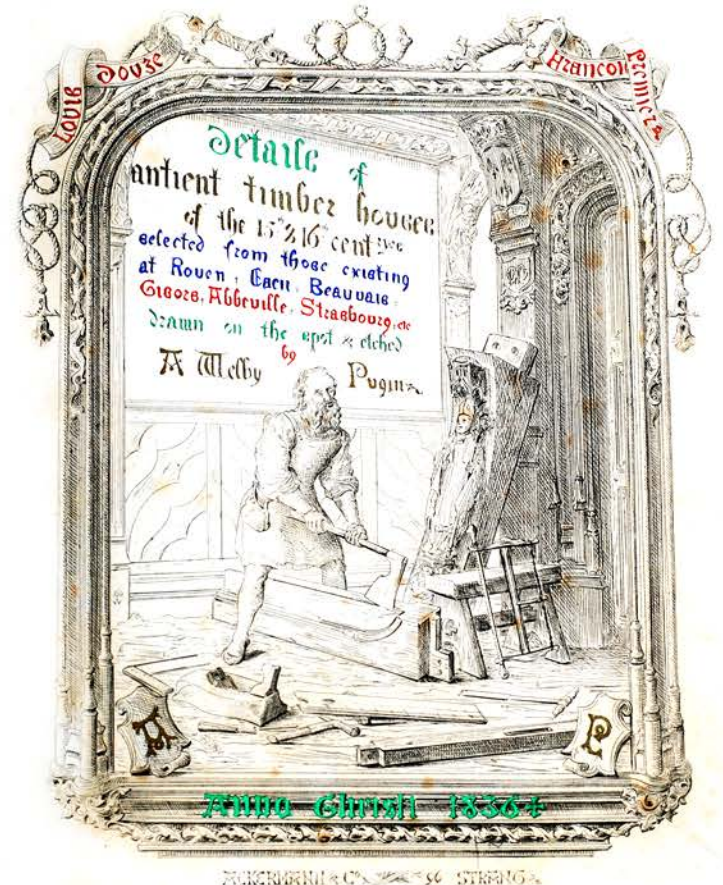 Louis Douze
Francois Premier
Details of
antient timber houses
of the 15th & 16th centries
selected from those existing
at Rouen, Caen, Beauvais,
Gisors, Abbeville, Strasbourg, etc
drawn on the spot & etched
by
A Welby Pugin
A
P
Anno Christi 1836
ACKERMANN & Co 96 STRAND